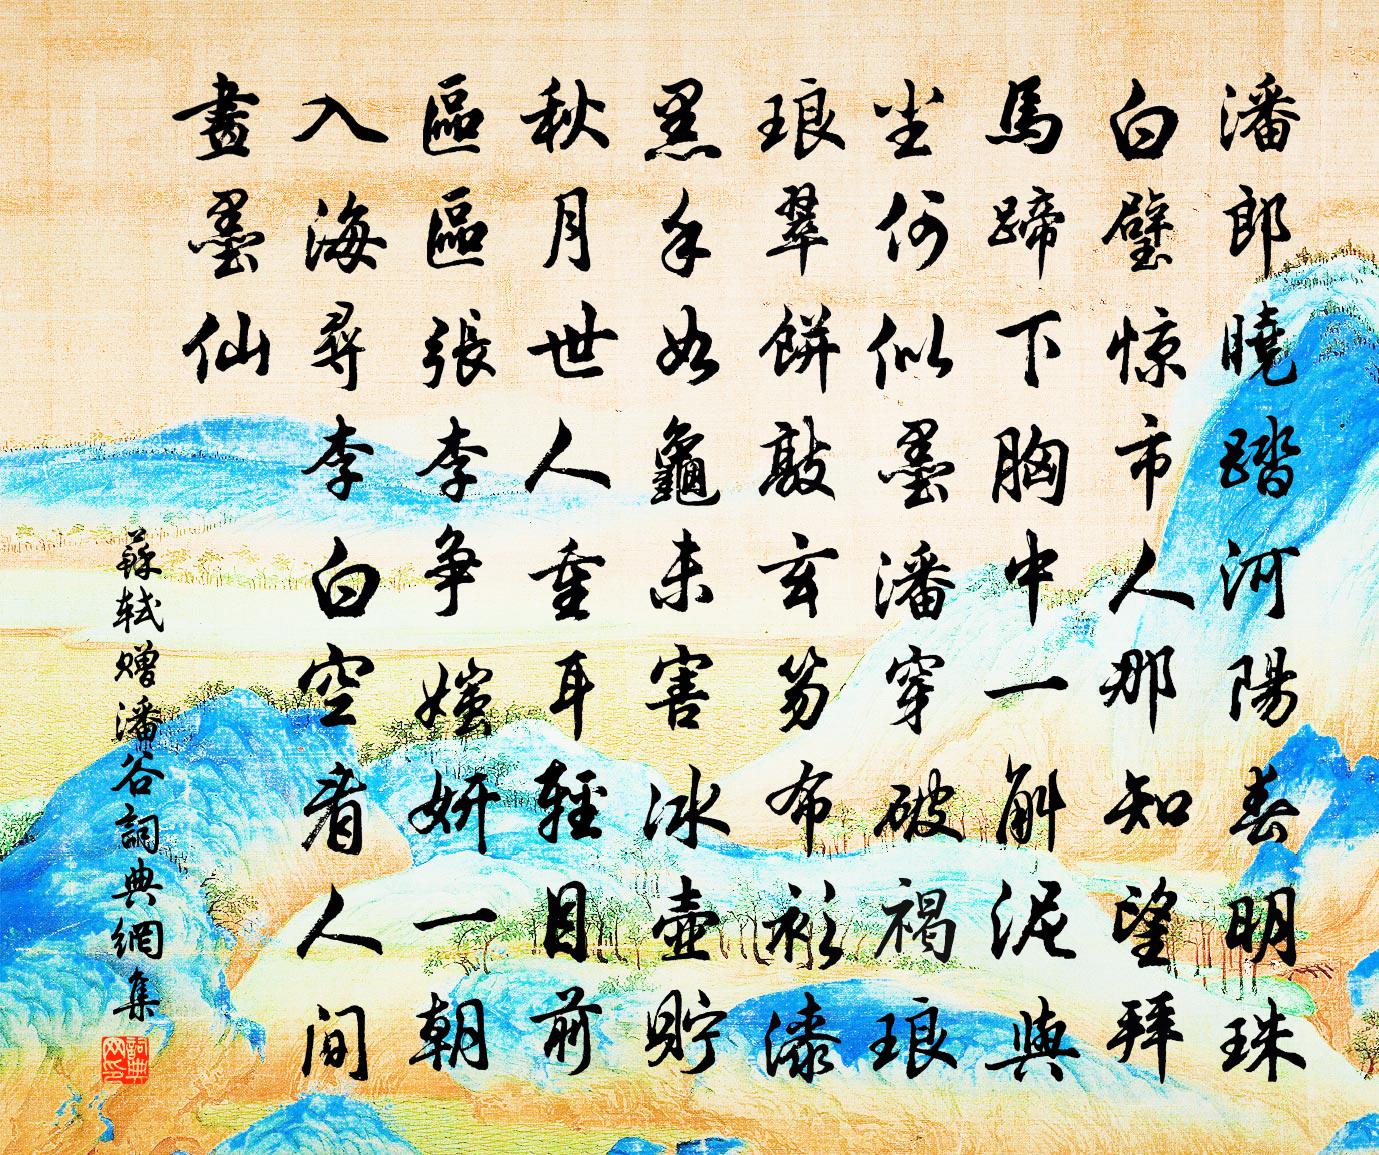 潘郎曉踏河陽春明珠
白璧惊市人那知望拜
馬蹄下胸中一斛泥與
尘何似墨潘穿破褐琅
琅翠餅敲玄笏布衫漆
黑手如龜未害冰壺貯
秋月世人重耳輕目前
區區張李争媸妍一朝
入海尋李白空看人間
畫墨仙
蘇軾贈潘谷詞典網集
詞典网印